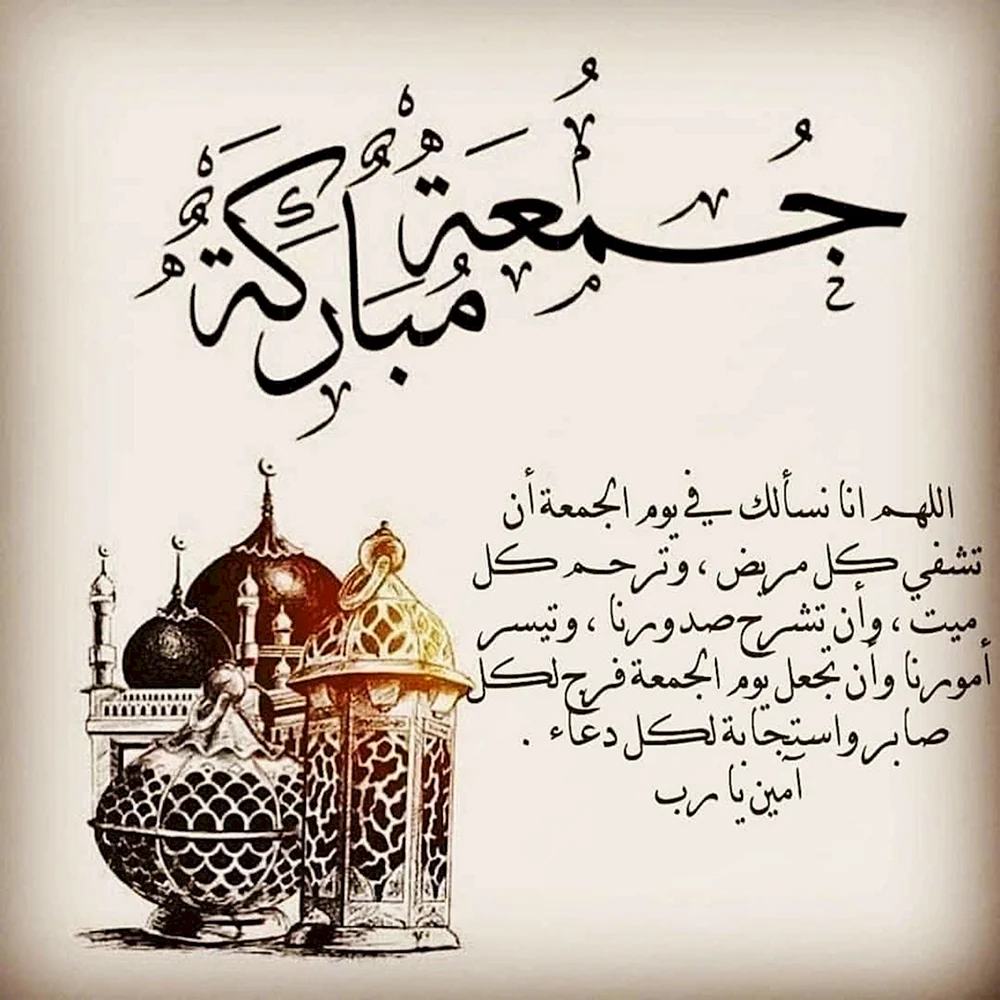 جُمُعَة
مُبَارَكَة
اللهم انا نسألك في يوم الجمعة أن
تشفي كل مريض ، وترحم كل
ميت ، وأن تشرح صدورنا ، وتيسر
أمورنا وأن تجعل يوم الجمعة فرج لكل
صابر واستجابة لكل دعاء .
آمين يا رب